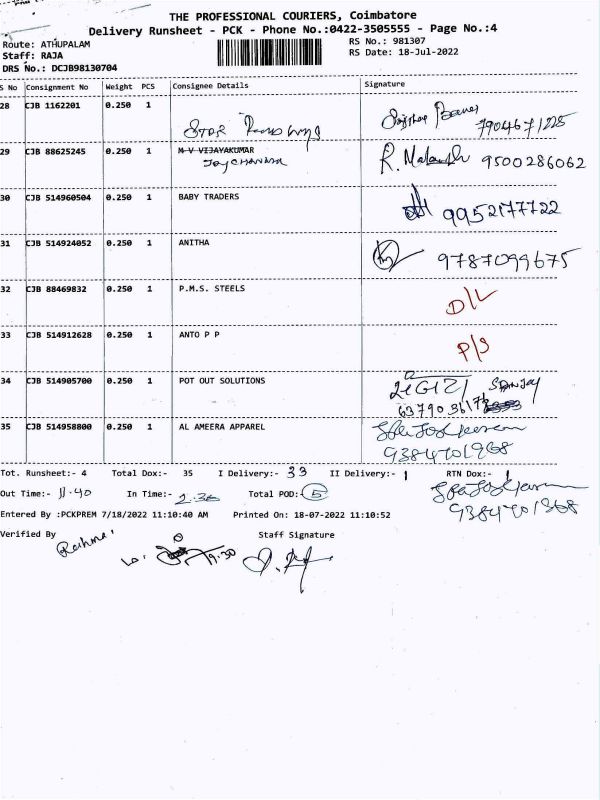 THE PROFESSIONAL COURIERS, Coimbatore
Delivery Runsheet - PCK - Phone No.:0422-3505555 - Page No.:4
Route: ATHUPALAM RS No.: 981307
Staff: RAJA RS Date: 18-Jul-2022
DRS No.: DCJB98130704
S No Consignment No Weight PCS Consignee Details Signature
28 CJB 1162201 0.250 1
STAR 7904671225
29 CJB 88625245 0.250 1 M V VIJAYAKUMAR
JAYCHANDRA R. 9500286062
30 CJB 514960504 0.250 1 BABY TRADERS
9952177722
31 CJB 514924052 0.250 1 ANITHA
9787099675
32 CJB 88469832 0.250 1 P.M.S. STEELS
D/L
33 CJB 514912628 0.250 1 ANTO P P
P/S
34 CJB 514905700 0.250 1 POT OUT SOLUTIONS SANJAY
35 CJB 514958800 0.250 1 AL AMEERA APPAREL
9384701968
Tot. Runsheet:- 4 Total Dox:- 35 I Delivery:- 33 II Delivery:- 1 RTN Dox:- 1
Out Time:- 11.40 In Time:- 2.30 Total POD:- 5
Entered By :PCKPREM 7/18/2022 11:10:40 AM Printed On: 18-07-2022 11:10:52
Verified By Staff Signature